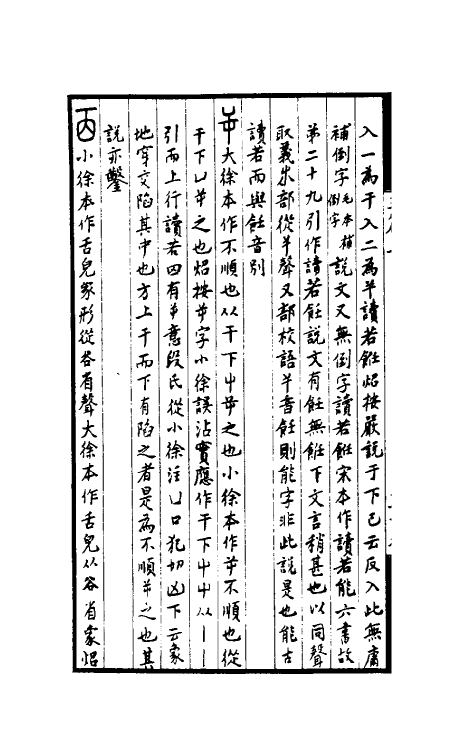 入一為干入二為𢆉讀若飪炤按嚴說于下已云反入此無庸
補倒字毛本補倒字說文又無倒字讀若飪宋本作讀若能六書故
第二十九引作讀若飪說文有飪無𩛿下文言稍甚也以同聲
取義米部從𢆉聲又部校語𢆉音飪則能字非此說是也能古
讀若而與飪音別
屰大徐本作不順也从干下屮屰之也小徐本作屰不順也從
干下凵屰之也炤按屰字小徐誤沾實應作干下屮屮从丨丨
引而上行讀若囟有屰意段氏從小徐注凵口犯切凶下云象
地穿交陷其中也方上干而下有陷之者是為不順屰之也其
說亦鑿
㐁小徐本作舌皃象形從谷省聲大徐本作舌皃从谷省象炤